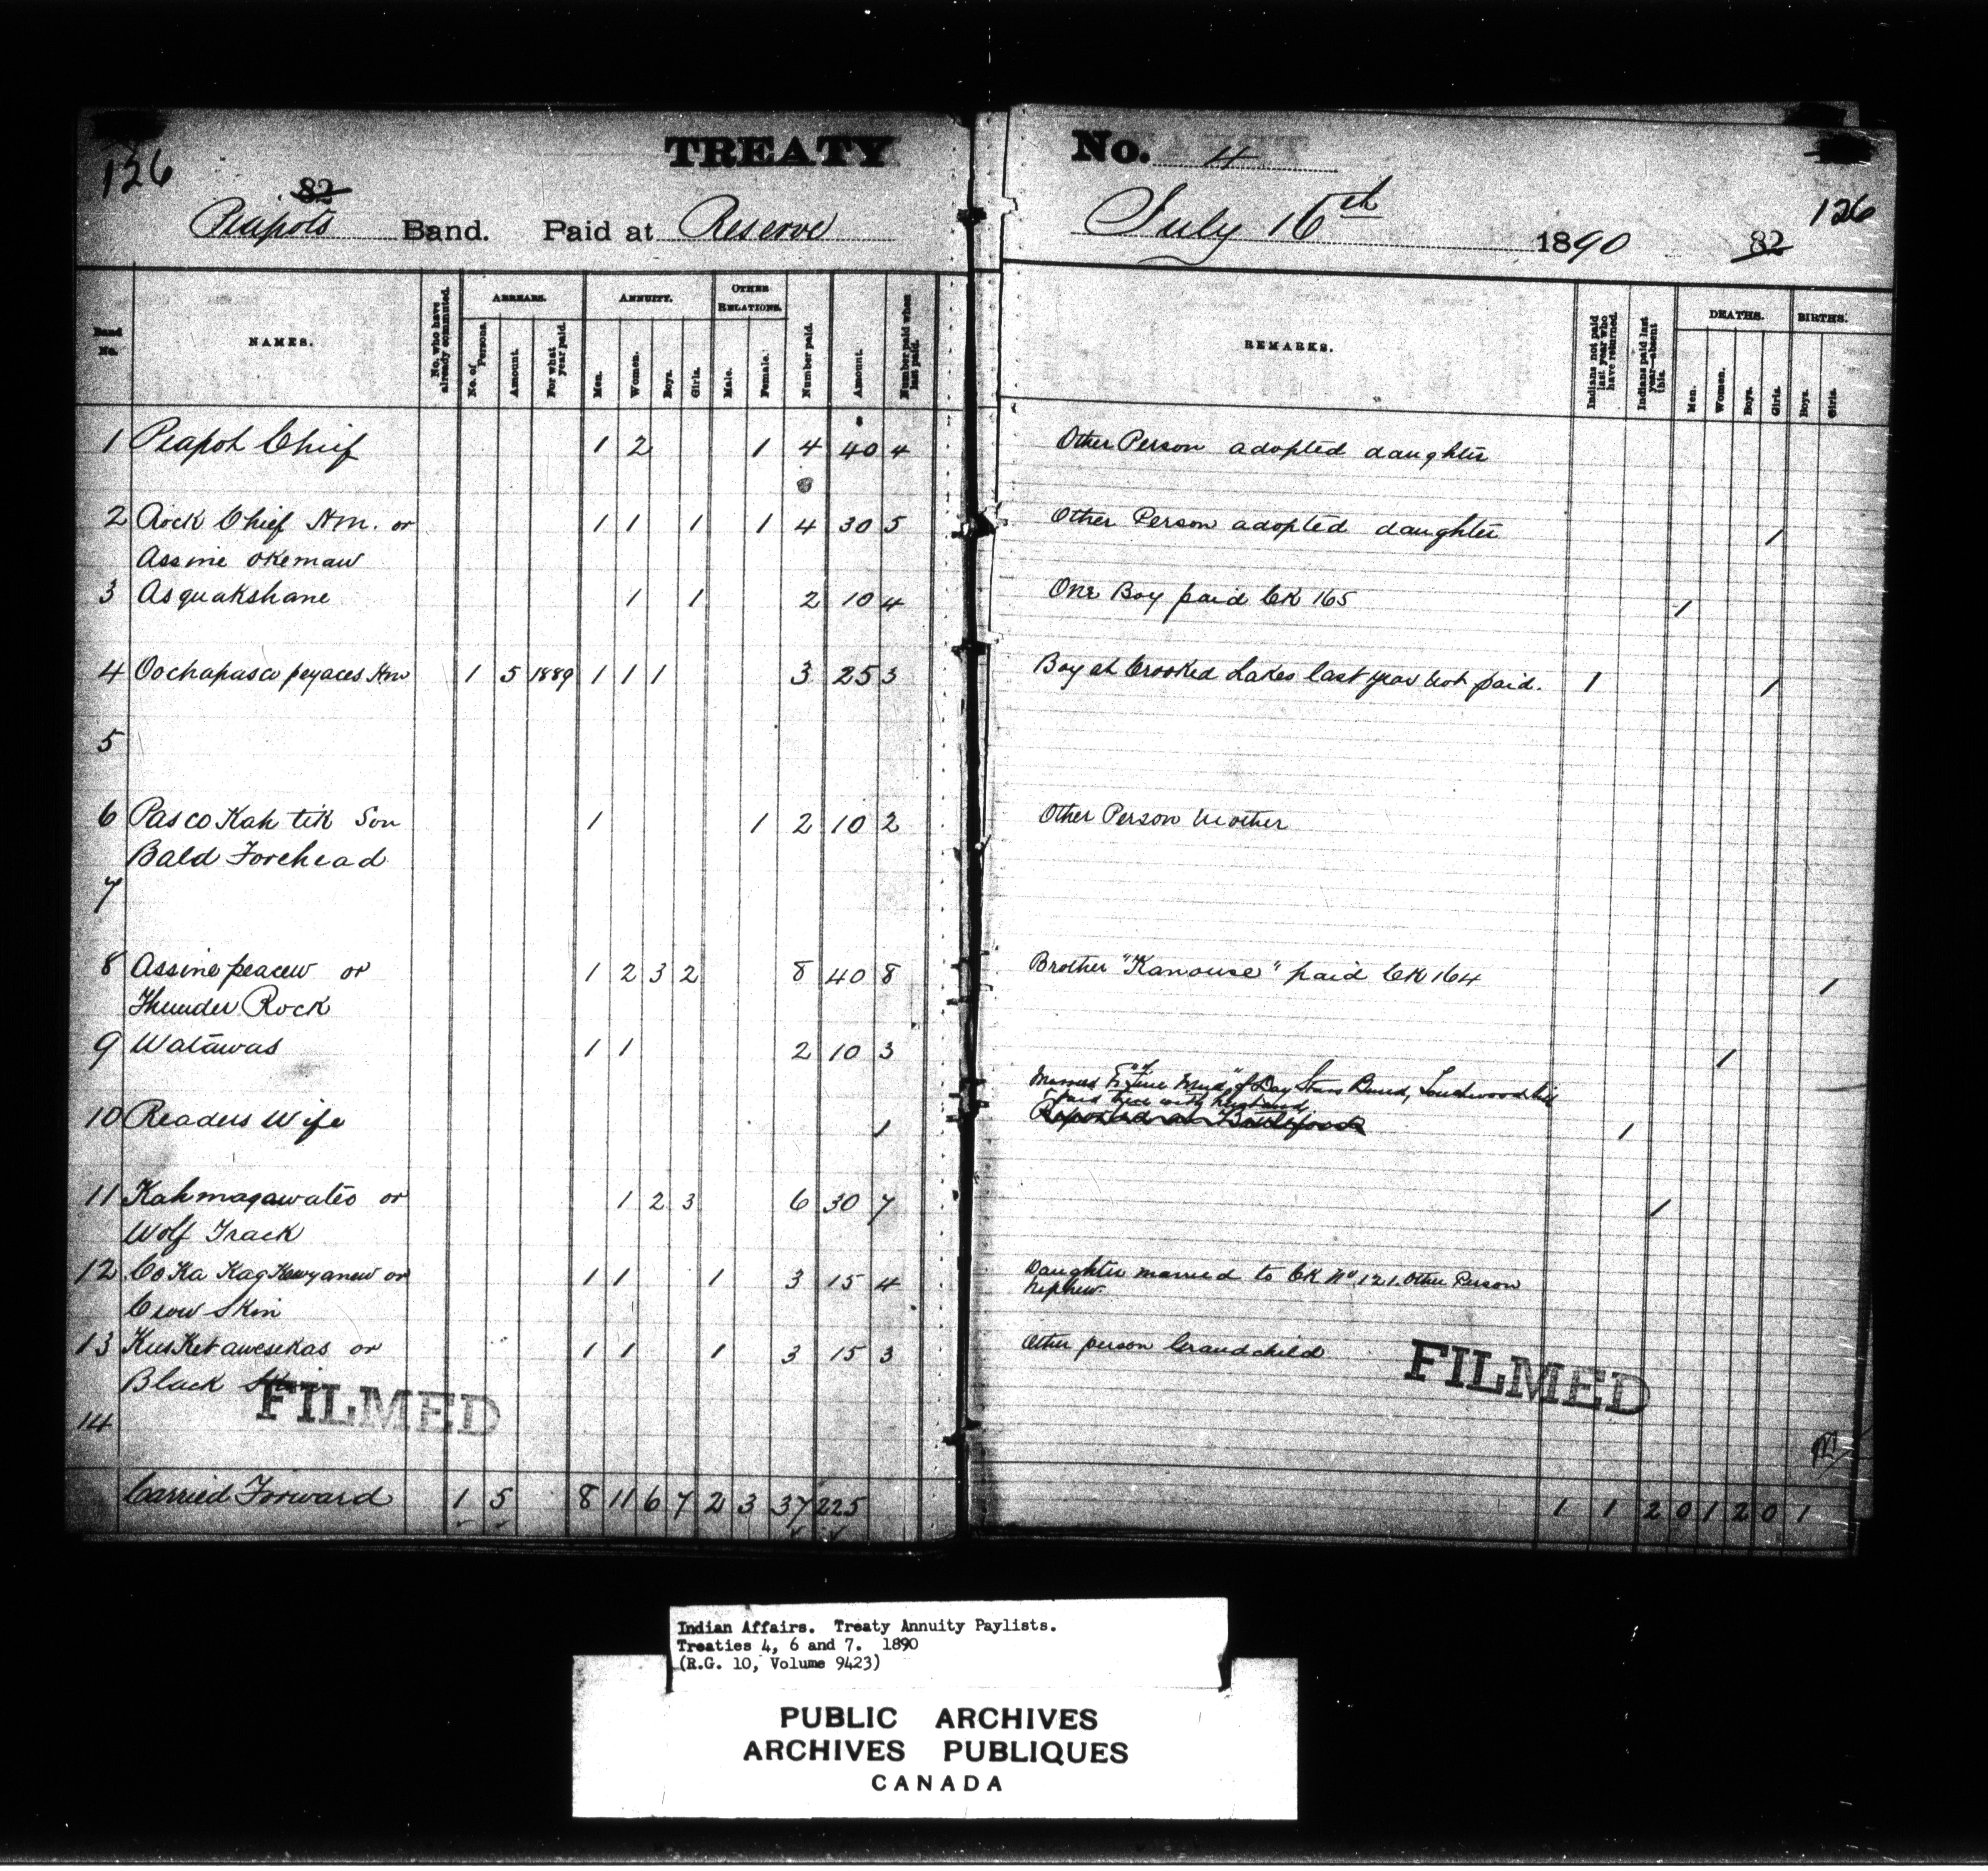 126
TREATY
No. 4
82
Piapots Band. Paid at Reserve
July 16th 1890
126
82
Band No.
NAMES.
No. who have already commuted.
ARREARS.
No. of Persons.
Amount.
For what year paid.
ANNUITY.
Men.
Women.
Boys.
Girls.
OTHER RELATIONS.
Male.
Female.
Number paid.
Amount.
Number paid when last paid.
REMARKS.
Indians not paid last year who have returned.
Indians paid last year—absent this.
DEATHS.
Men.
Women.
Boys.
Girls.
BIRTHS.
Boys.
Girls.
1 Piapot Chief 1 2 1 4 40 4 Other Person adopted daughter
2 Rock Chief Hm. or 1 1 1 1 4 30 5 Other Person adopted daughter 1
Assine okemaw
3 Asquakshane 1 1 2 10 4 One Boy paid CK 165 1
4 Oochapasco peyaces Hm 1 5 1889 1 1 1 3 25 3 Boy at Crooked Lakes last year not paid. 1 1
5
6 Pasco Kah tik Son 1 1 2 10 2 Other Person Mother
Bald Forehead
7
8 Assine peacew or 1 2 3 2 8 40 8 Brother "Kanouse" paid CK 164 1
Thunder Rock
9 Watawas 1 1 2 10 3 1
Married to of Day Stars Band,
paid here with husband
10 Readers Wife 1 1
11 Kahmagawateo or 1 2 3 6 30 7 1
Wolf Track
12 Co Ka Kag Kewyanew or 1 1 1 3 15 4 Daughter married to CK No 121. Other Person
Crow Skin nephew.
13 KusKetawesekas or 1 1 1 3 15 3 Other person Grandchild
Black Skin
FILMED
FILMED
14
Carried Forward 1 5 8 11 6 7 2 3 37 225 1 1 2 0 1 2 0 1
Indian Affairs. Treaty Annuity Paylists.
Treaties 4, 6 and 7. 1890
(R.G. 10, Volume 9423)
PUBLIC ARCHIVES
ARCHIVES PUBLIQUES
CANADA